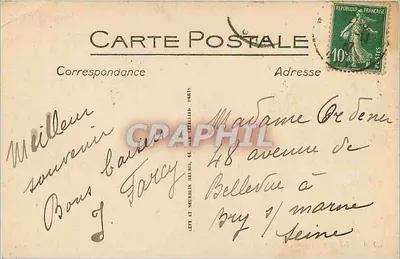 CARTE POSTALE
Correspondance
Adresse
RÉPUBLIQUE FRANÇAISE
10
Meilleur
souvenir
Bons baisers
J. Farcy
CRAPHIL
Madame Ordener
48 avenue de
Bellevue à
Bry s/ marne
Seine